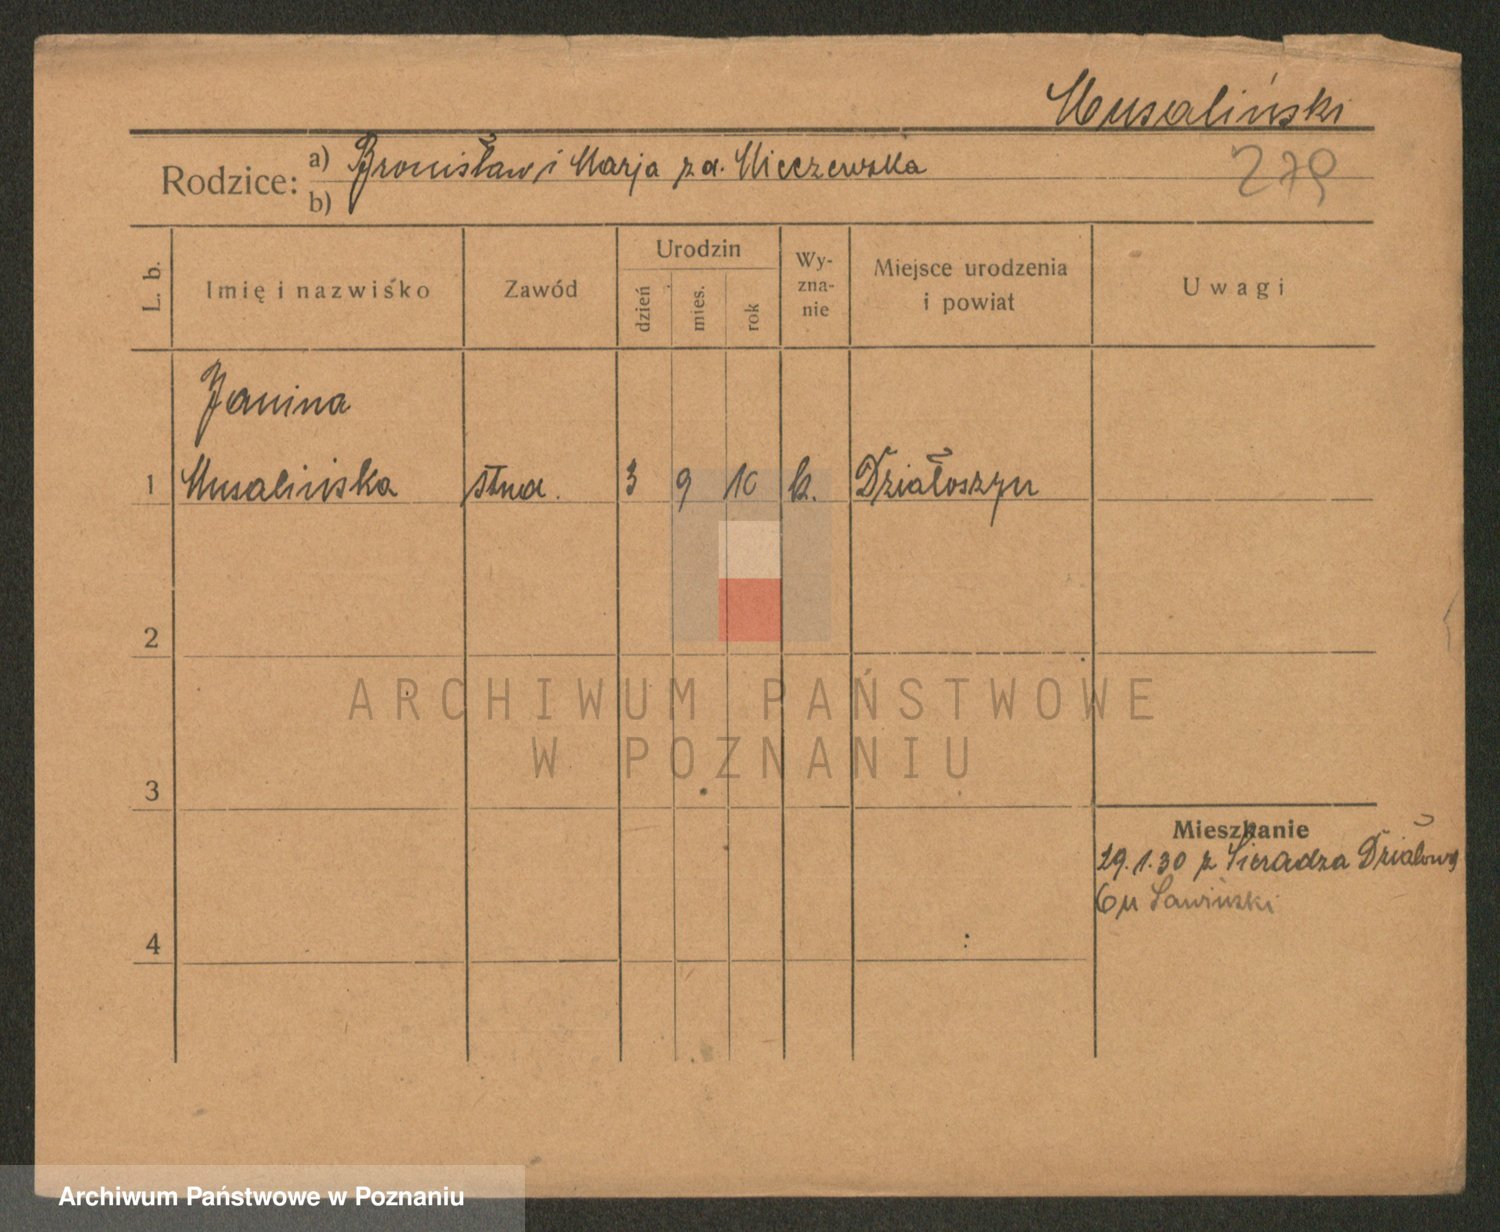 Musaliński
Rodzice: a) Bronisław i Marja z d. Mieczewska
b)
279
L. b.
Imię i nazwisko
Zawód
Urodzin
dzień
mies.
rok
Wy-
zna-
nie
Miejsce urodzenia
i powiat
Uwagi
Janina
1 Musalińska stud. 3 9 10 k. Działoszyn
2
3
4
ARCHIWUM PAŃSTWOWE
W POZNANIU
Mieszkanie
29.1.30 z Sieradza Działowa
6 u Sawiński
Archiwum Państwowe w Poznaniu